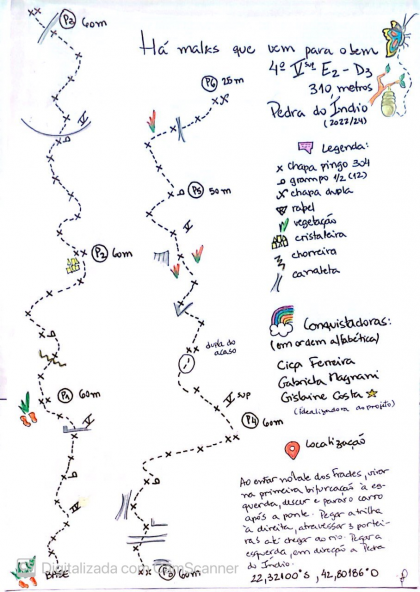 Há malks que vem para o bem
4º Vsup E2 - D3
310 metros
Pedra do Índio
(2022/24)
Legenda:
x chapa pingo 304
grampo 1/2 (12)
chapa dupla
rapel
vegetação
cristaleira
chorreira
canaleta
Conquistadoras:
(em ordem alfabética)
Ciça Ferreira
Gabriela Magnani
Gislaine Costa
(Idealizadora do projeto)
Localização
Ao entrar no Vale dos Frades, virar
na primeira bifurcação à es-
querda, descer e parar o carro
após a ponte. Pegar a trilha
à direita, atravessar 3 portei-
ras até chegar ao rio. Pegar a
esquerda, em direção a Pedra
do Índio.
22,32100°S, 42,80186°O
P3 60m
V
P2 60m
P1 60m
V
IV
BASE
P6 25m
P5 50m
V
duvla do
acaso
V sup
P4 60m
P3 60m
Digitalizada com CamScanner